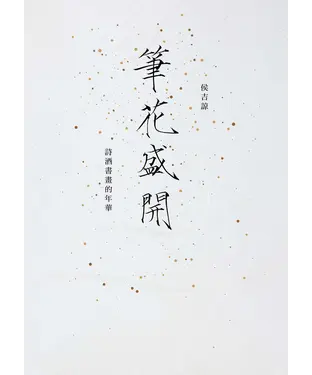 侯吉諒
筆花盛開
詩酒書畫的年華